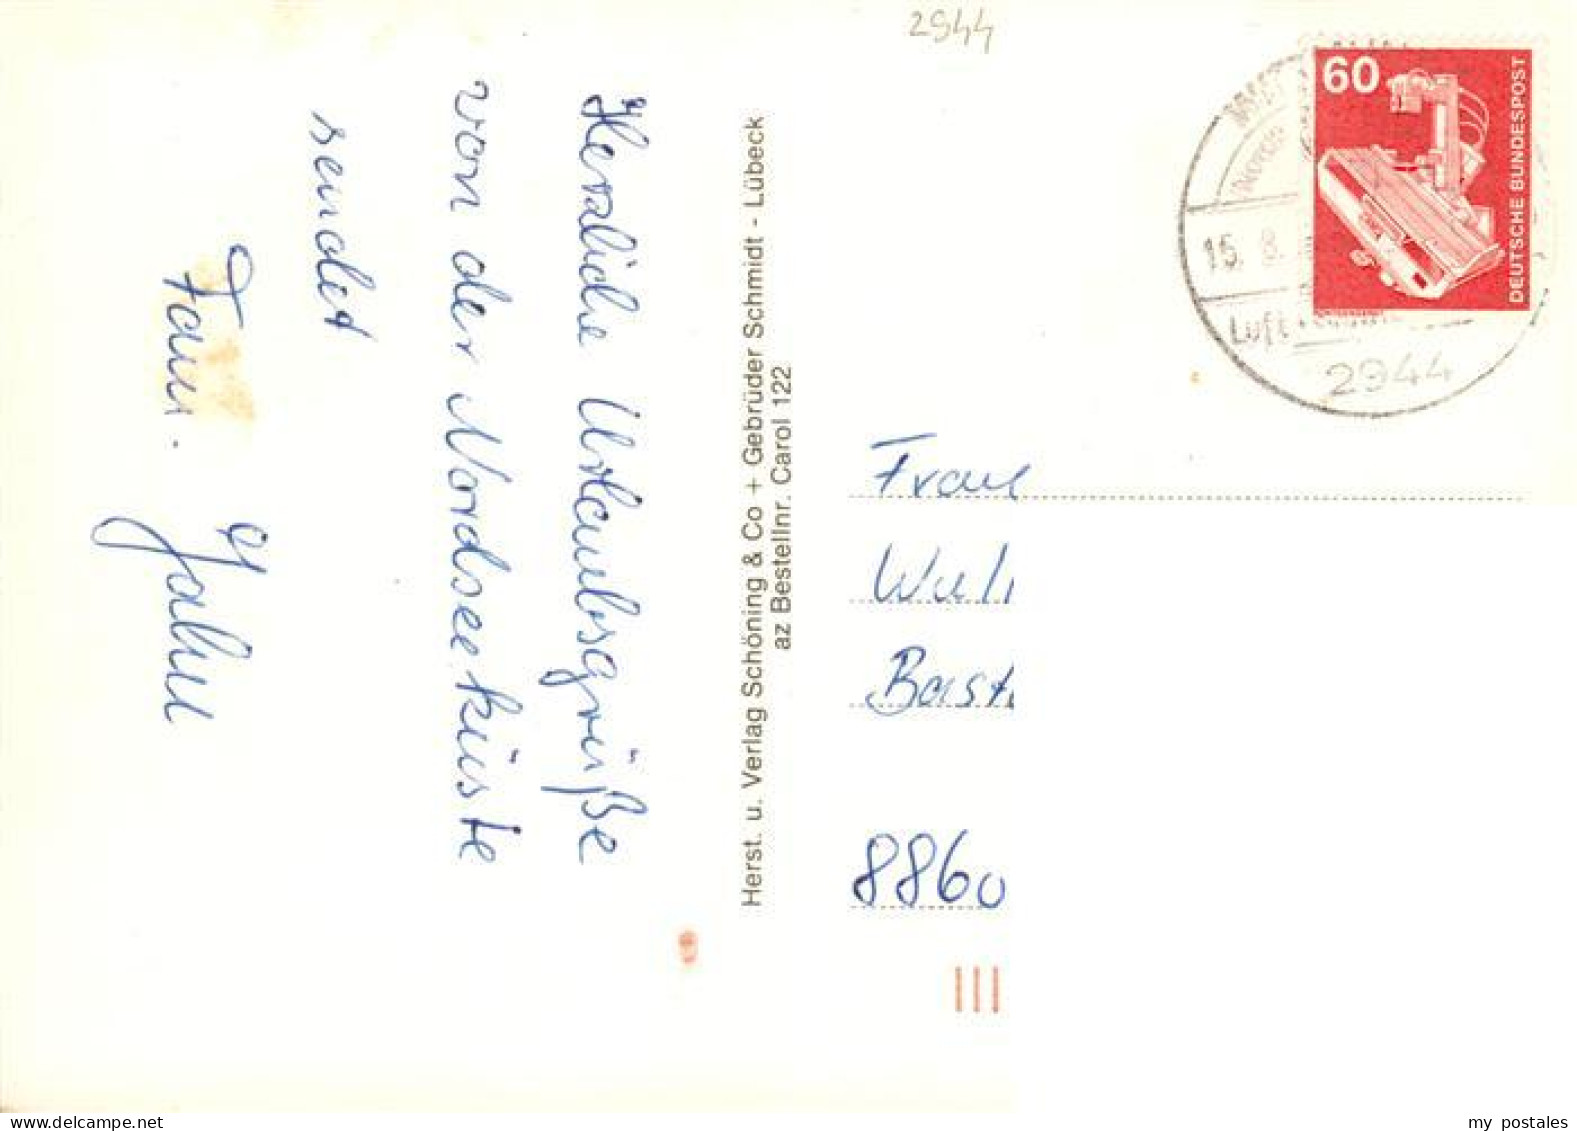 Herzliche Urlaubsgrüße
von der Nordseeküste
sendet
Fam.
Herst. u. Verlag Schöning & Co + Gebrüder Schmidt - Lübeck
az Bestellnr. Carol 122
2944
60
DEUTSCHE BUNDESPOST
15. 8.
Luft
2944
Frau
8860
delcampe.net
my postales